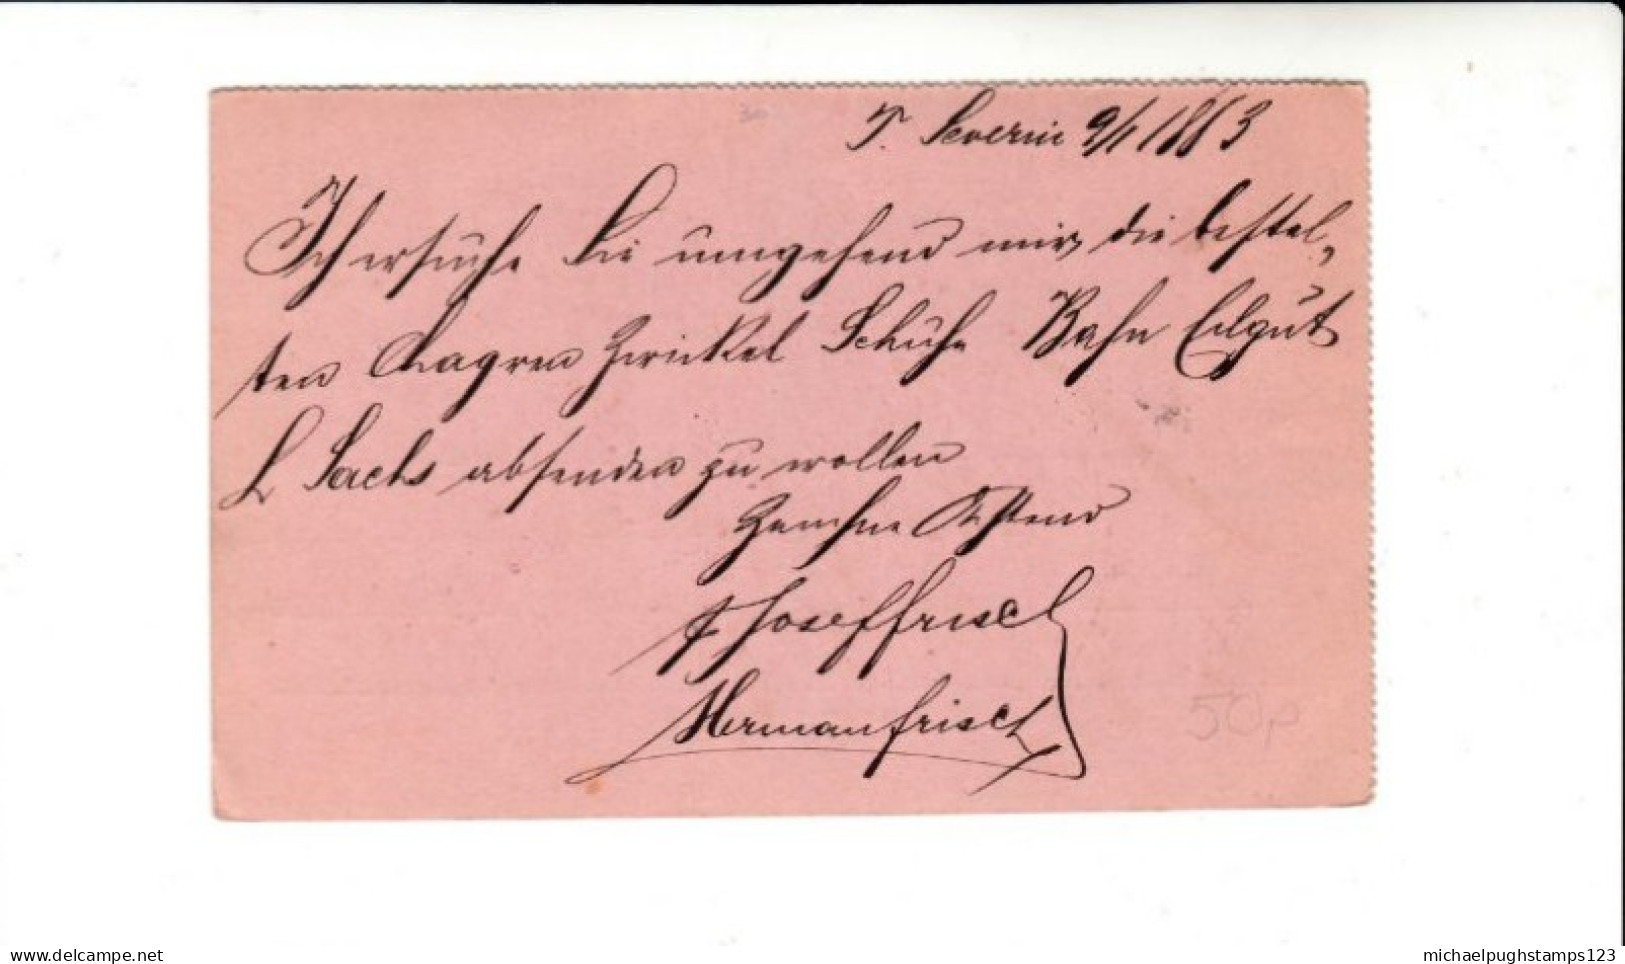 T. Severin 9/1 1883
Ich ersuche Sie umgehend mir die bestel-
ten Chagren Zwickel Schuhe Bahn Eilgut
L Sachs absenden zu wollen
Zeichne Achtend
Josef Frisch
Herman Frisch
50p
Ich bin auf Delcampe.net
michaelpughstamps123